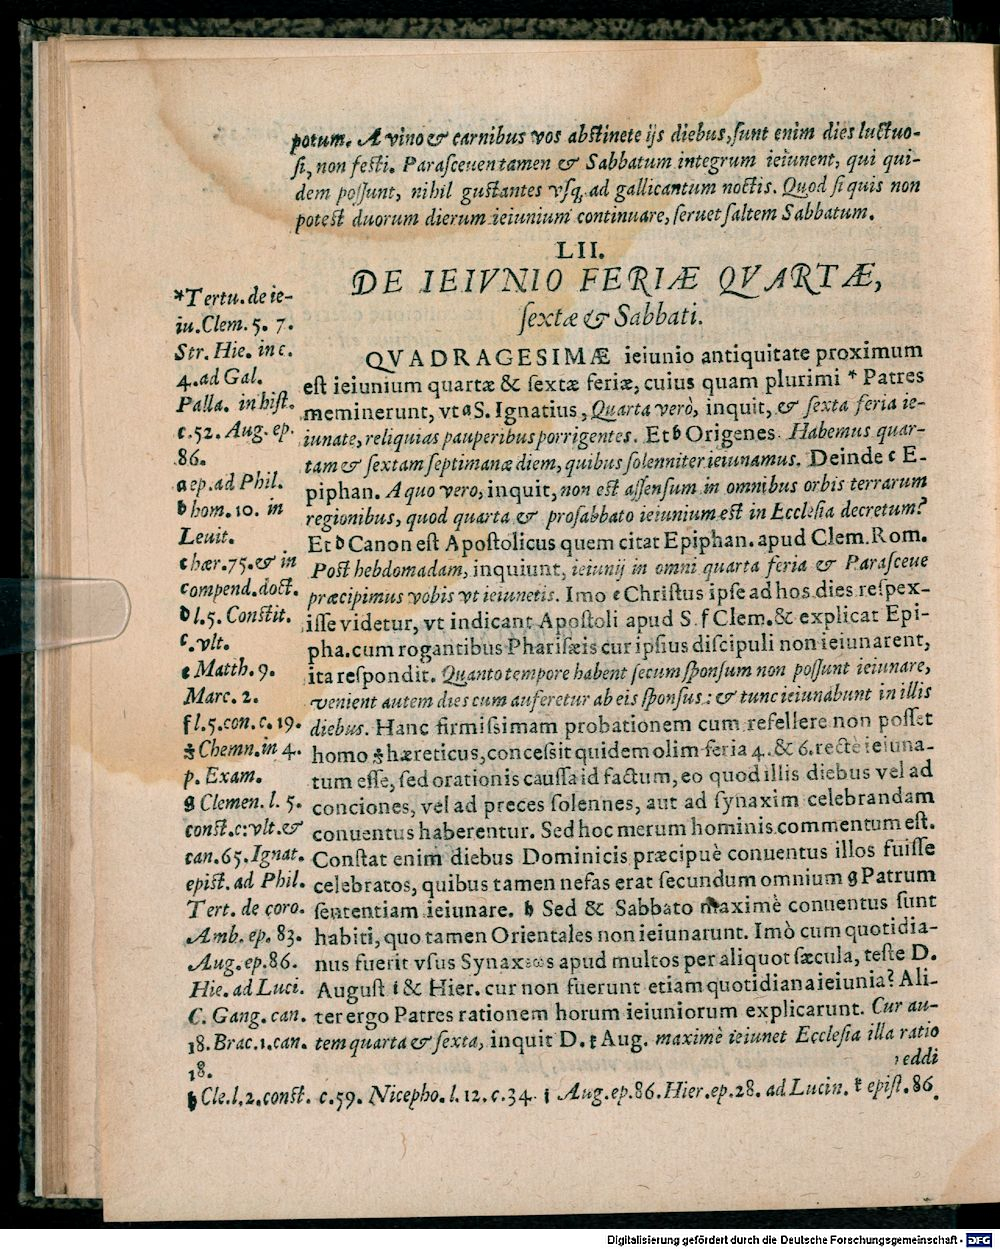 potum. A vino & carnibus vos abstinete ijs diebus, sunt enim dies luctuo-
si, non festi. Parasceuen tamen & Sabbatum integrum ieiunent, qui qui-
dem possunt, nihil gustantes vsq. ad gallicantum noctis. Quod si quis non
potest duorum dierum ieiunium continuare, seruet saltem Sabbatum.
LII.
DE IEIVNIO FERIÆ QVARTÆ,
sextæ & Sabbati.
QVADRAGESIMÆ ieiunio antiquitate proximum
est ieiunium quartæ & sextæ feriæ, cuius quam plurimi * Patres
meminerunt, vt a S. Ignatius, Quarta verò, inquit, & sexta feria ie-
iunate, reliquias pauperibus porrigentes. Et b Origenes. Habemus quar-
tam & sextam septimanæ diem, quibus solenniter ieiunamus. Deinde c E-
piphan. A quo vero, inquit, non est assensum in omnibus orbis terrarum
regionibus, quod quarta & prosabbato ieiunium est in Ecclesia decretum?
Et d Canon est Apostolicus quem citat Epiphan. apud Clem. Rom.
Post hebdomadam, inquiunt, ieiunij in omni quarta feria & Parasceue
præcipimus vobis vt ieiunetis. Imo e Christus ipse ad hos dies respex-
isse videtur, vt indicant Apostoli apud S. f Clem. & explicat Epi-
pha. cum rogantibus Pharisæis cur ipsius discipuli non ieiunarent,
ita respondit. Quanto tempore habent secum sponsum non possunt ieiunare,
venient autem dies cum auferetur ab eis sponsus: & tunc ieiunabunt in illis
diebus. Hanc firmissimam probationem cum refellere non posset
homo hæreticus, concessit quidem olim feria 4. & 6. recte ieiuna-
tum esse, sed orationis caussa id factum, eo quod illis diebus vel ad
conciones, vel ad preces solennes, aut ad synaxim celebrandam
conuentus haberentur. Sed hoc merum hominis commentum est.
Constat enim diebus Dominicis præcipuè conuentus illos fuisse
celebratos, quibus tamen nefas erat secundum omnium g Patrum
sententiam ieiunare. h Sed & Sabbato maximè conuentus sunt
habiti, quo tamen Orientales non ieiunarunt. Imò cum quotidia-
nus fuerit vsus Synaxeos apud multos per aliquot sæcula, teste D.
August i & Hier. cur non fuerunt etiam quotidiana ieiunia? Ali-
ter ergo Patres rationem horum ieiuniorum explicarunt. Cur au-
tem quarta & sexta, inquit D. k Aug. maximè ieiunet Ecclesia illa ratio
reddi
*Tertu. de ie-
iu. Clem. 5. 7.
Str. Hie. in c.
4. ad Gal.
Palla. in hist.
c. 52. Aug. ep.
86.
a ep. ad Phil.
b hom. 10. in
Leuit.
c hær. 75. & in
compend. doct.
d l. 5. Constit.
c. vlt.
e Matth. 9.
Marc. 2.
f l. 5. con. c. 19.
Chemn. in 4.
p. Exam.
g Clemen. l. 5.
const. c: vlt. &
can. 65. Ignat.
epist. ad Phil.
Tert. de coro.
Amb. ep. 83.
Aug. ep. 86.
Hie. ad Luci.
C. Gang. can.
18. Brac. 1. can.
18.
h Cle. l. 2. const. c. 59. Nicepho. l. 12. c. 34. i Aug. ep. 86. Hier. ep. 28. ad Lucin. k epist. 86.
Digitalisierung gefördert durch die Deutsche Forschungsgemeinschaft - DFG